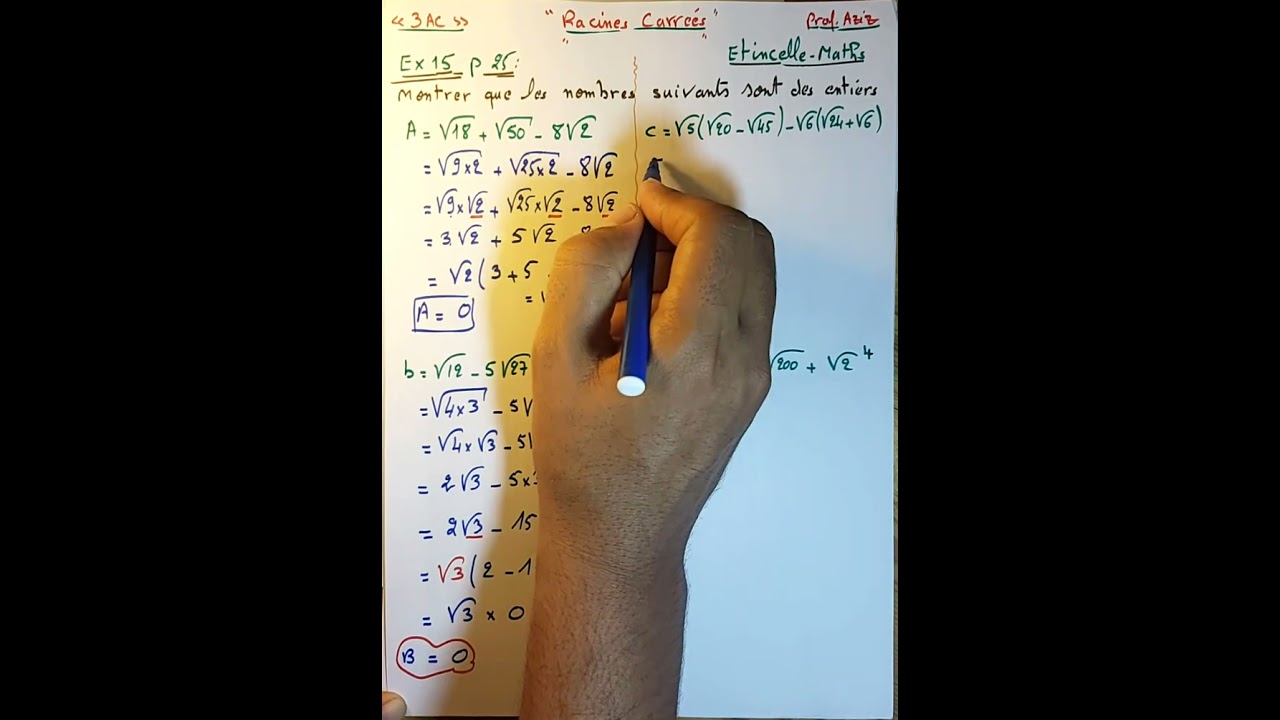 « 3AC » "Racines Carreés" Prof. Aziz
Etincelle-Maths
Ex 15 p 25:
Montrer que les nombres suivants sont des entiers
A = √18 + √50 - 8√2
= √9×2 + √25×2 - 8√2
= √9×√2 + √25×√2 - 8√2
= 3√2 + 5√2
= √2(3+5
=
A = 0
b = √12 - 5√27
= √4×3 - 5√
= √4×√3 - 5
= 2√3 - 5×
= 2√3 - 15
= √3(2 - 1
= √3 × 0
B = 0
c = √5(√20 - √45) - √6(√24 + √6)
√200 + √2⁴